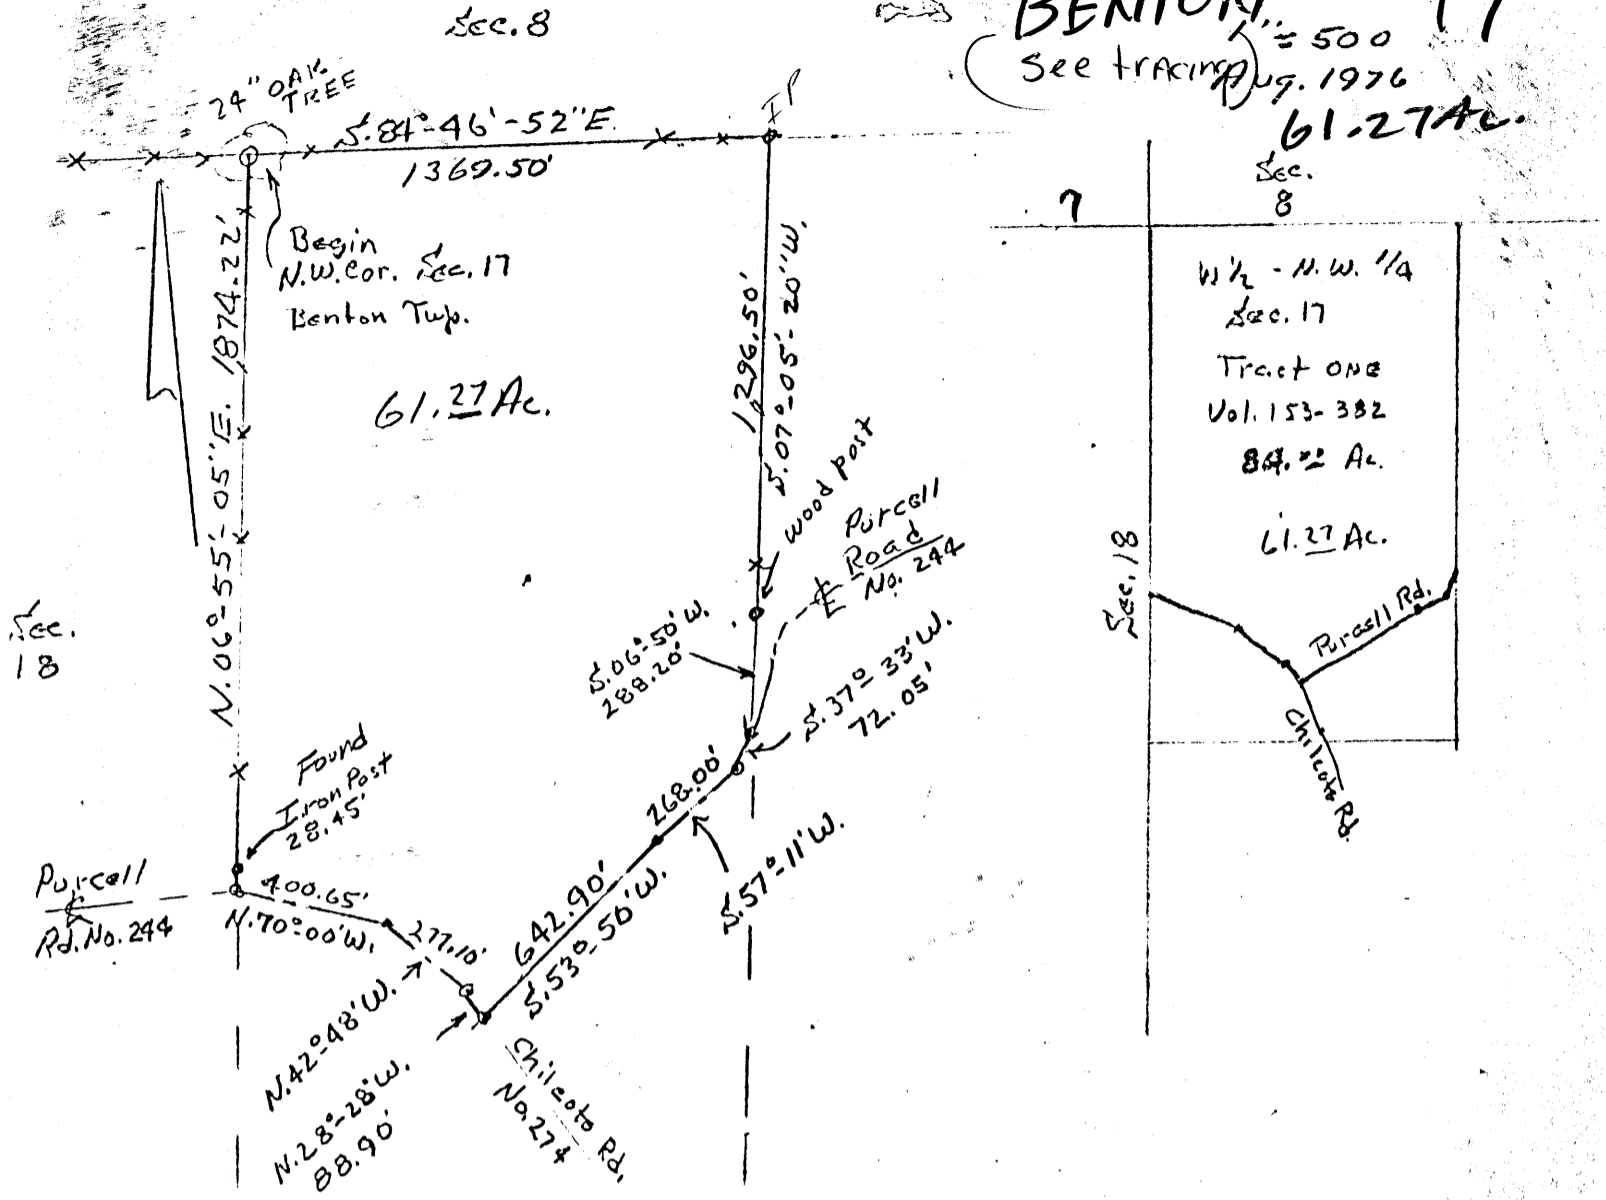 Sec. 8
BENTON 17
1" = 500
(See tracing) Aug. 1976
61.27 Ac.
24" OAK
TREE
S. 84°-46'-52" E.
1369.50'
IP
Begin
N.W. Cor. Sec. 17
Benton Twp.
61.27 Ac.
N. 06°-55'-05" E. 1874.22'
1,296.50'
S. 07°-05'-20" W.
wood post
Purcell
Road
No. 244
S. 06°-50' W.
288.20'
S. 37°-33' W.
72.05'
Sec.
18
Found
Iron Post
28.45'
268.00'
S. 57°-11' W.
Purcell
Rd. No. 244
400.65'
N. 70°-00' W.
277.10'
642.90'
S. 53°-56' W.
N. 42°-48' W.
N. 28°-28' W.
88.90'
Chilcote Rd.
No. 274
7
Sec.
8
W 1/2 - N.W. 1/4
Sec. 17
Tract ONE
Vol. 153-382
Ac.
61.27 Ac.
Sec. 18
Purcell Rd.
Chilcote Rd.